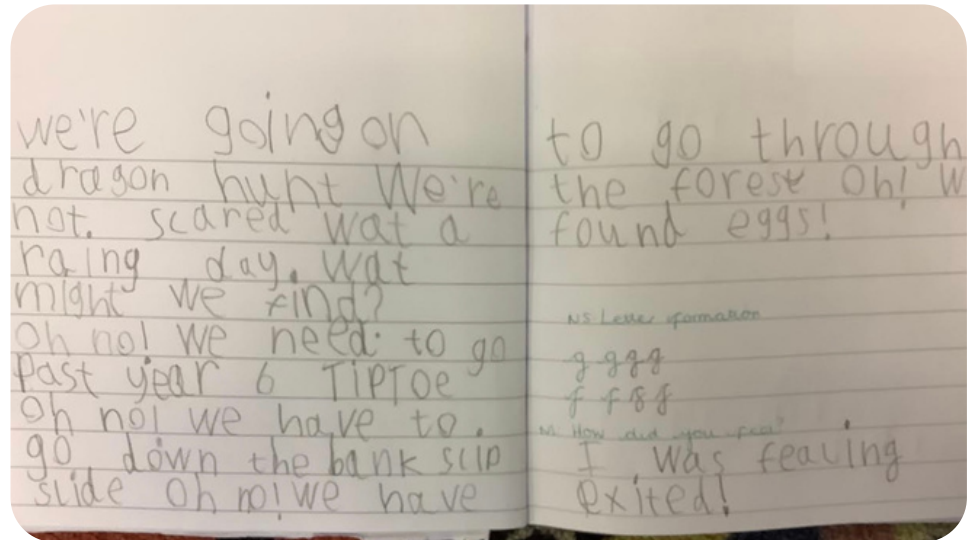 we're going on
dragon hunt We're
not. scared wat a
raing day. wat
might we find?
oh no! we need. to go
Past year 6 TIPTOE
Oh no! we have to.
go down the bank slip
slide Oh no! we have
to go through
the forest Oh! W
found eggs!
NS Letter formation
g g g g
f f f f
NS How did you feel?
I was fealing
exited!